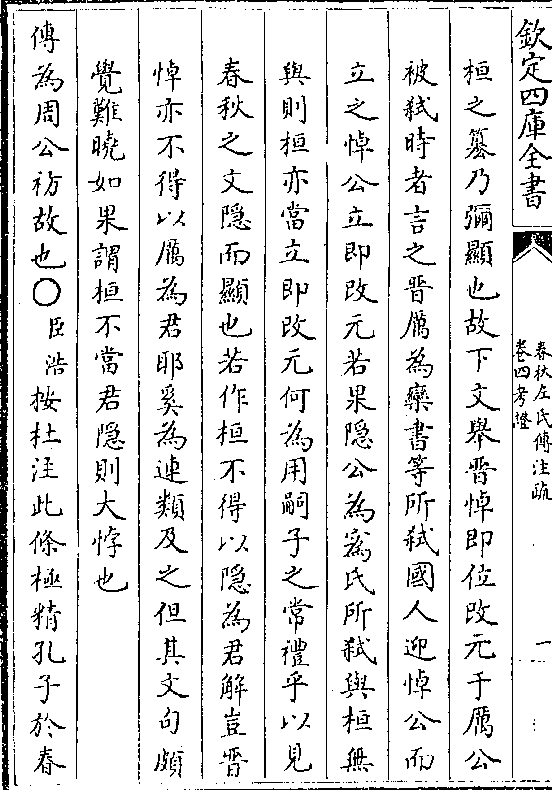 欽定四庫全書
春秋左氏傳注疏
卷四考證
一
桓之簒乃彌顯也故下文舉晋悼即位改元于厲公
被弑時者言之晋厲為欒書等所弑國人迎悼公而
立之悼公立即改元若果隐公為寪氏所弑與桓無
與則桓亦當立即改元何為用嗣子之常禮乎以見
春秋之文隐而顯也若作桓不得以隐為君解豈晋
悼亦不得以厲為君耶奚為連類及之但其文句頗
覺難曉如果謂桓不當君隐則大悖也
傳為周公祊故也〇臣浩按杜注此條極精孔子於春